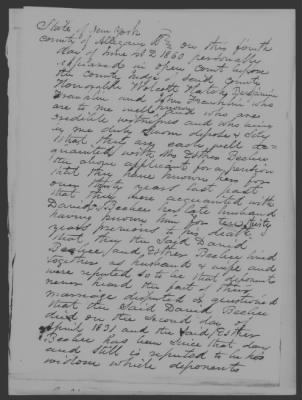 State of New York
County of Allegany SS on this fourth
day of June A.D. 1860 personally
appeared in open court before
the county Judge of said county
Honorable Wolcott Hatch, Benjamin
Franklin and John Franklin who
are to me well known and who are
credible witnesses and who being
by me duly sworn depose & say
that they are each well ac-
quainted with Mrs Esther Beebee
the above applicant for a pension
that they have known her for
over thirty years last past
that they were acquainted with
David Beebee her late husband
having known him for twenty
years previous to his death
that they the said David
Beebee and Esther Beebee lived
together as husband & wife and
were reputed so to be that deponents
never heard the fact of their
marriage disputed or questioned
that the said David Beebee
died on the second day of
April 1831 and the said Esther
Beebee has been since that day
and still is reputed to be his
widow while deponents